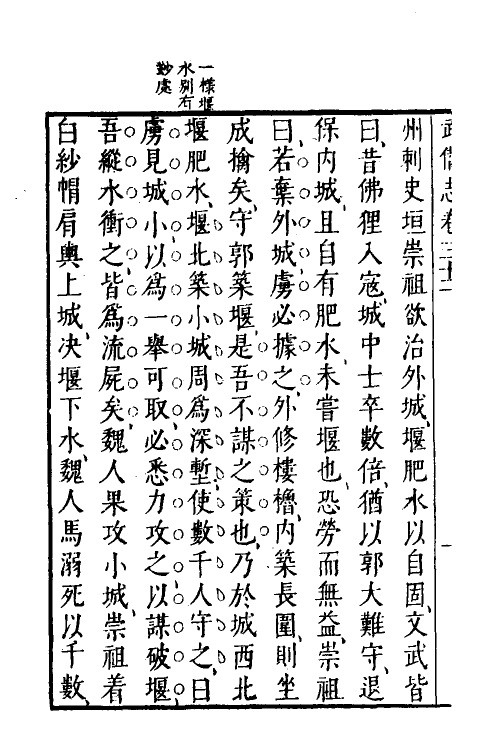 一樣堰
水別有
妙處
武備志卷三十一
州刺史垣崇祖欲治外城堰肥水以自固文武皆
曰昔佛狸入寇城中士卒數倍猶以郭大難守退
保内城且自有肥水未嘗堰也恐勞而無益崇祖
曰若棄外城虜必據之外修樓櫓内築長圍則坐
成擒矣守郭築堰是吾不諫之策也乃於城西北
堰肥水堰北築小城周爲深塹使數千人守之曰
虜見城小以爲一舉可取必悉力攻之以謀破堰
吾縱水衝之皆爲流屍矣魏人果攻小城崇祖着
白紗帽肩輿上城决堰下水魏人馬溺死以千數